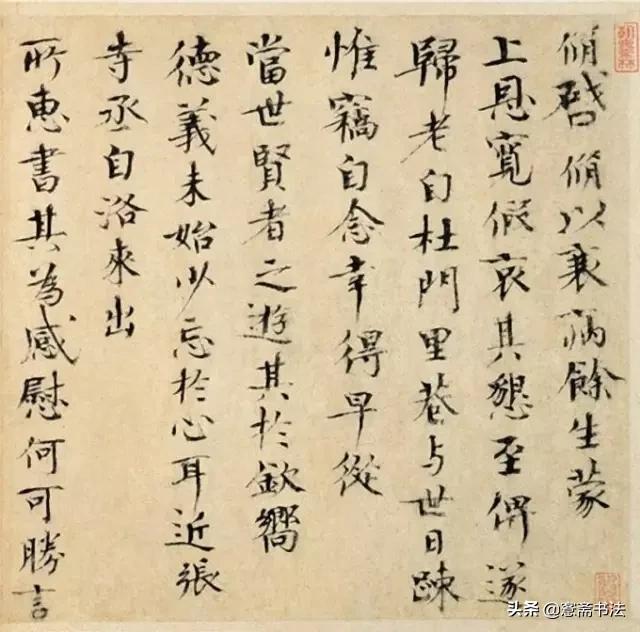 脩啓脩以衰病餘生蒙
上恩寬假哀其懇至俾遂
歸老自杜門里巷与世日疎
惟竊自念幸得早從
當世賢者之遊其於欽嚮
德義未始少忘於心耳近張
寺丞自洛來出
所惠書其為感慰何可勝言
头条@愙斋书法